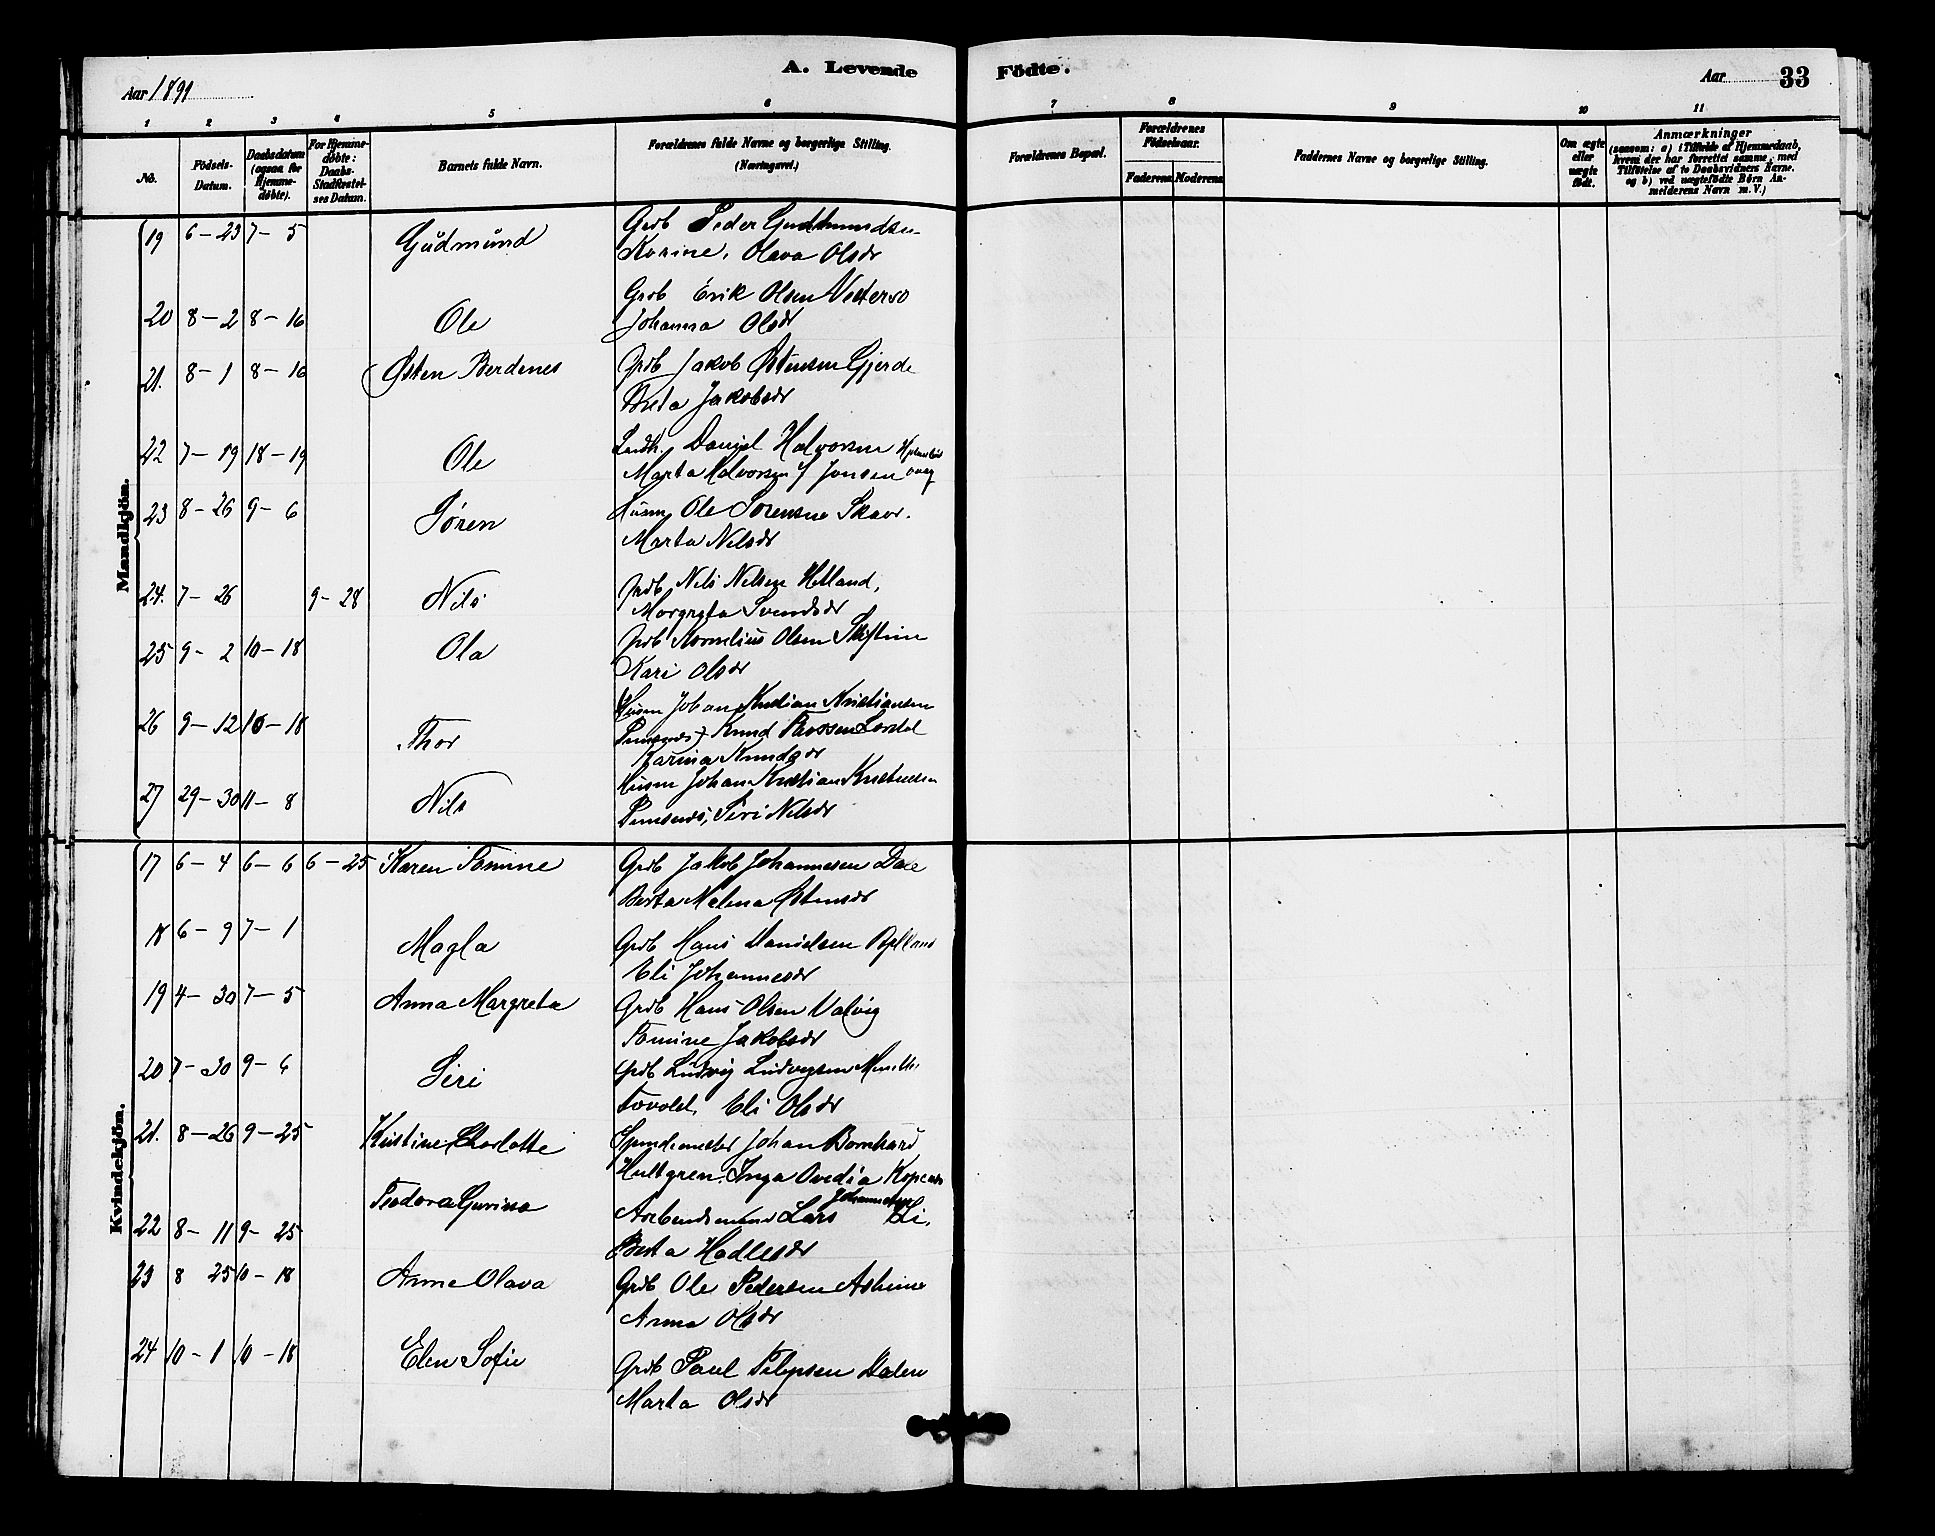 A. Levende Födte.
Aar 1891
Aar 33
1 2 3 4 5 6 7 8 9 10 11
No.
Födsels-Datum.
Daabsdatum (ogsaa for Hjemme-döbte).
For Hjemme-döbte: Daabs-Stadfæstel-ses Datum.
Barnets fulde Navn.
Forældrenes fulde Navne og borgerlige Stilling.
(Næringsvei.)
Forældrenes Bopæl.
Forældrenes Födselsaar.
Faderens Moderens
Faddernes Navne og borgerlige Stilling.
Om ægte eller uægte födt.
Anmærkninger
(saasom: a) i Tilfælde af Hjemmedaab, hvem der har forrettet samme, med Tilföielse af to Daabsvidners Navne, og b) ved uægtefödte Börn An-melderens Navn m. V.)
Mandkjön.
19 6-23 7-5 Gudmund Grdb Peder Gudmundsen
Karine. Olava Olsdr
20 8-2 8-16 Ole Grdb Erik Olsen
Johanna Olsdr
21. 8-1 8-16 Østen Berdenes Grdb Jakob Østensen Gjerde
Jakobsdr
22 7-19 18-19 Ole Daniel Halvorsen
Marta Halvorsen f Jonsen
23 8-26 9-6 Sören Husm Ole Sorensen
Marta Nilsdr
24. 7-26 9-28 Nils Grdb Nils Nilsen
Margreta Svendsdr
25 9-2 10-18 Ola Grdb Kornelius Olsen
Kari Olsdr
26 9-12 10-18 Thor Husm Johan Kristian Kristiansen
Knud
Karina Knudsdr
27 29-30 11-8 Nils Husm Johan Kristian
Siri Nilsdr
Kvindekjön.
17 6-4 6-6 6-25 Karen Tomine Grdb Jakob Johannesen Dale
Berta Malena Østensdr
18 6-9 7-1 Magla Grdb Hans Danielsen
Eli Johannesdr
19 4-30 7-5 Anna Margreta Grdb Hans Olsen Valvig
Tomine Jakobsdr
20 7-30 9-6 Siri Grdb Ludvig Ludvigsen
Eli Olsdr
21. 8-26 9-25 Kristine Charlotte Johan Bernhard
Hultgren. Inga Ovedia
22 8-11 9-25 Teodora Gurina Arbeidsmand Lars Johannesen Li.
Berta Hadlesdr
23 8 25 10-18 Anne Olava Grdb Ole Pedersen
Anna Olsdr
24 10-1 10-18 Elen Sofie Grdb Paul Dalen
Marta Olsdr